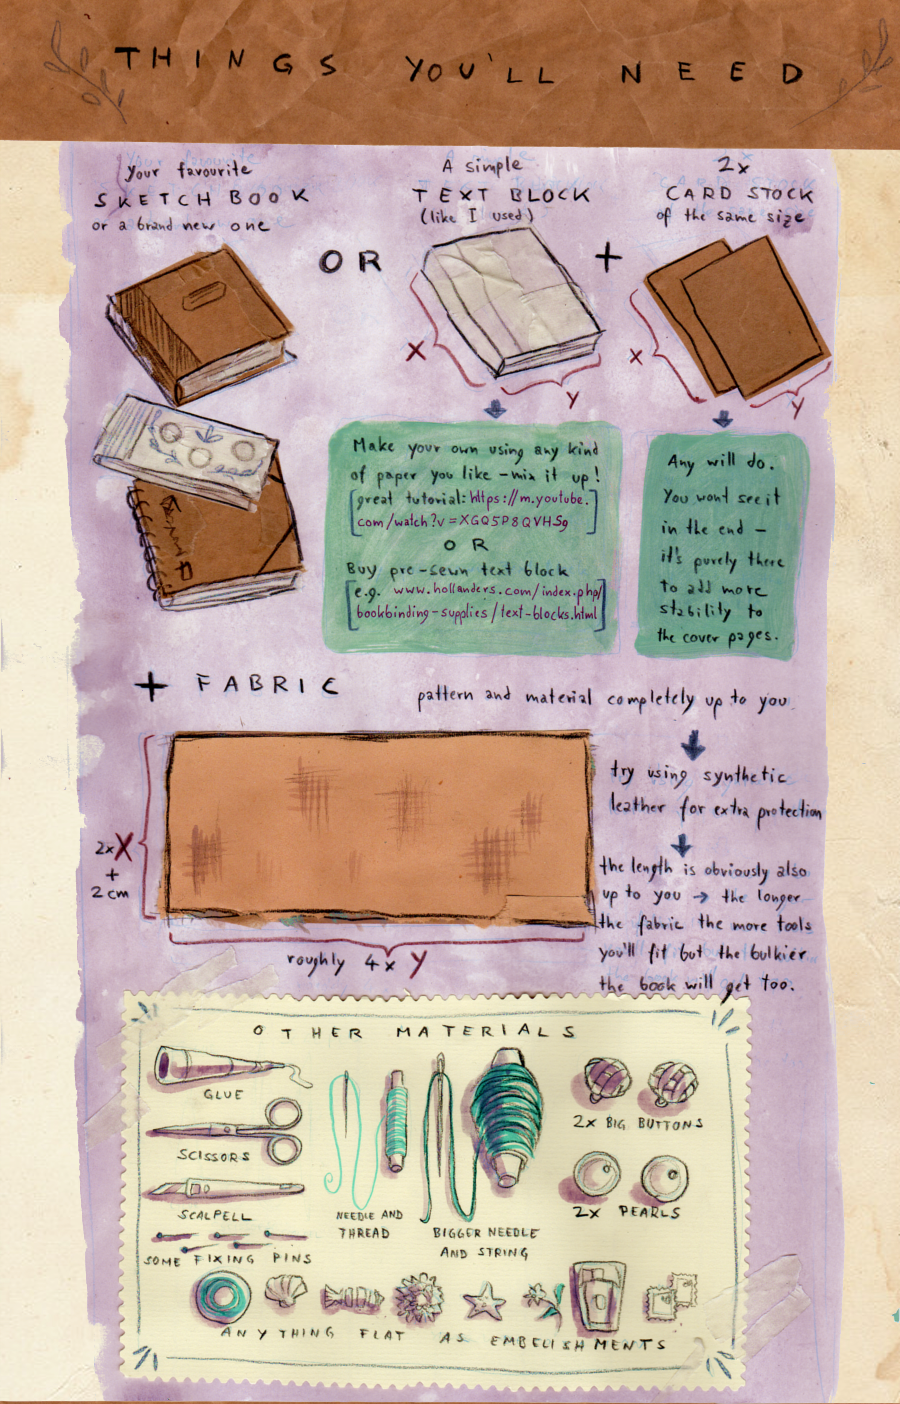 THINGS YOU'LL NEED
Your favourite
SKETCH BOOK
or a brand new one
OR
A simple
TEXT BLOCK
(like I used)
+
2x
CARD STOCK
of the same size
X
Y
X
Y
Make your own using any kind
of paper you like - mix it up!
[great tutorial: https://m.youtube.
com/watch?v=XGQ5P8QVHSg]
OR
Buy pre-sewn text block
[e.g. www.hollanders.com/index.php/
bookbinding-supplies/text-blocks.html]
Any will do.
You wont see it
in the end -
it's purely there
to add more
stability to
the cover pages.
+ FABRIC
pattern and material completely up to you
try using synthetic
leather for extra protection
the length is obviously also
up to you → the longer
the fabric the more tools
you'll fit but the bulkier
the book will get too.
2x X
+
2 cm
roughly 4x Y
OTHER MATERIALS
GLUE
SCISSORS
SCALPELL
SOME FIXING PINS
NEEDLE AND
THREAD
BIGGER NEEDLE
AND STRING
2x BIG BUTTONS
2x PEARLS
ANYTHING FLAT AS EMBELISHMENTS